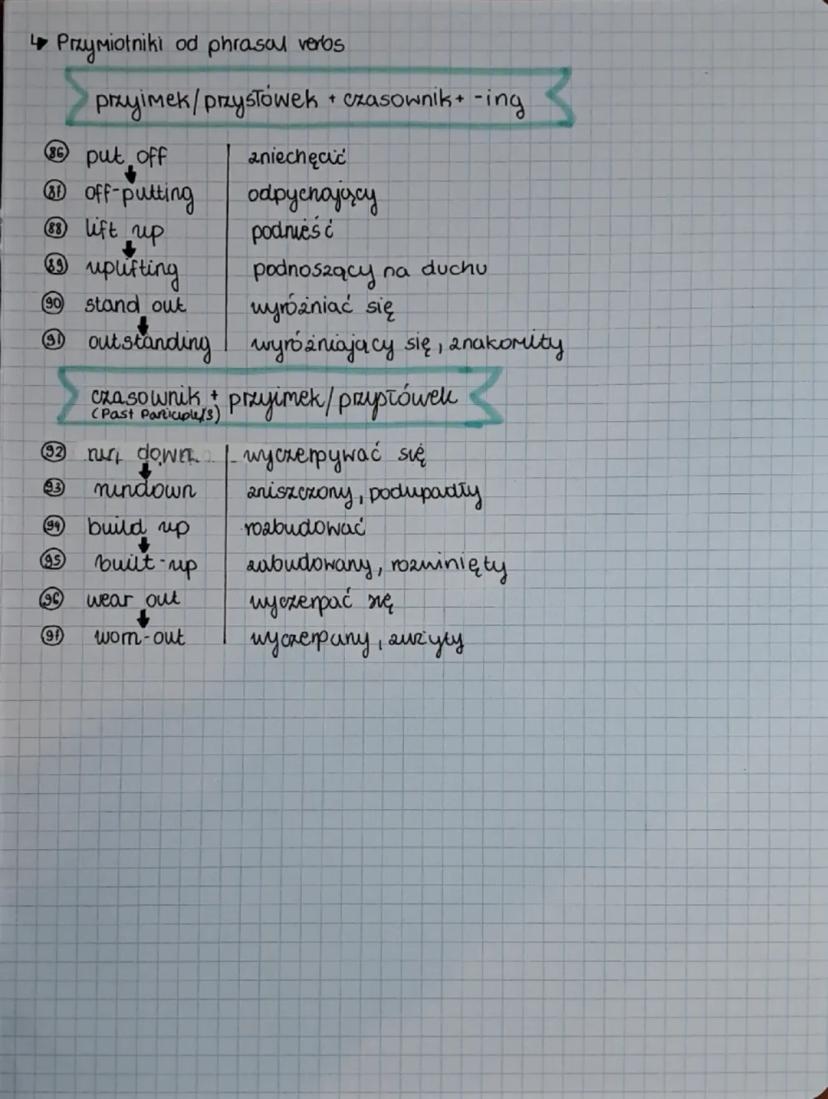 ↳ Przymiotniki od phrasal verbs
przyimek/przysłówek + czasownik + -ing
86 put off zniechęcić
87 off-putting odpychający
88 lift up podnieść
89 uplifting podnoszący na duchu
90 stand out wyróżniać się
91 outstanding wyróżniający się, znakomity
czasownik + przyimek/przysłówek
(Past Participle/3)
92 run down wyczerpywać się
93 rundown zniszczony, podupadły
94 build up rozbudować
95 built-up zabudowany, rozwinięty
96 wear out wyczerpać się
97 worn-out wyczerpany, zużyty